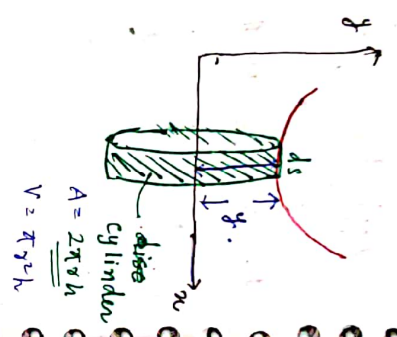 y
ds
y.
x
disc
cylinder
A = 2πrh
V = πr²h